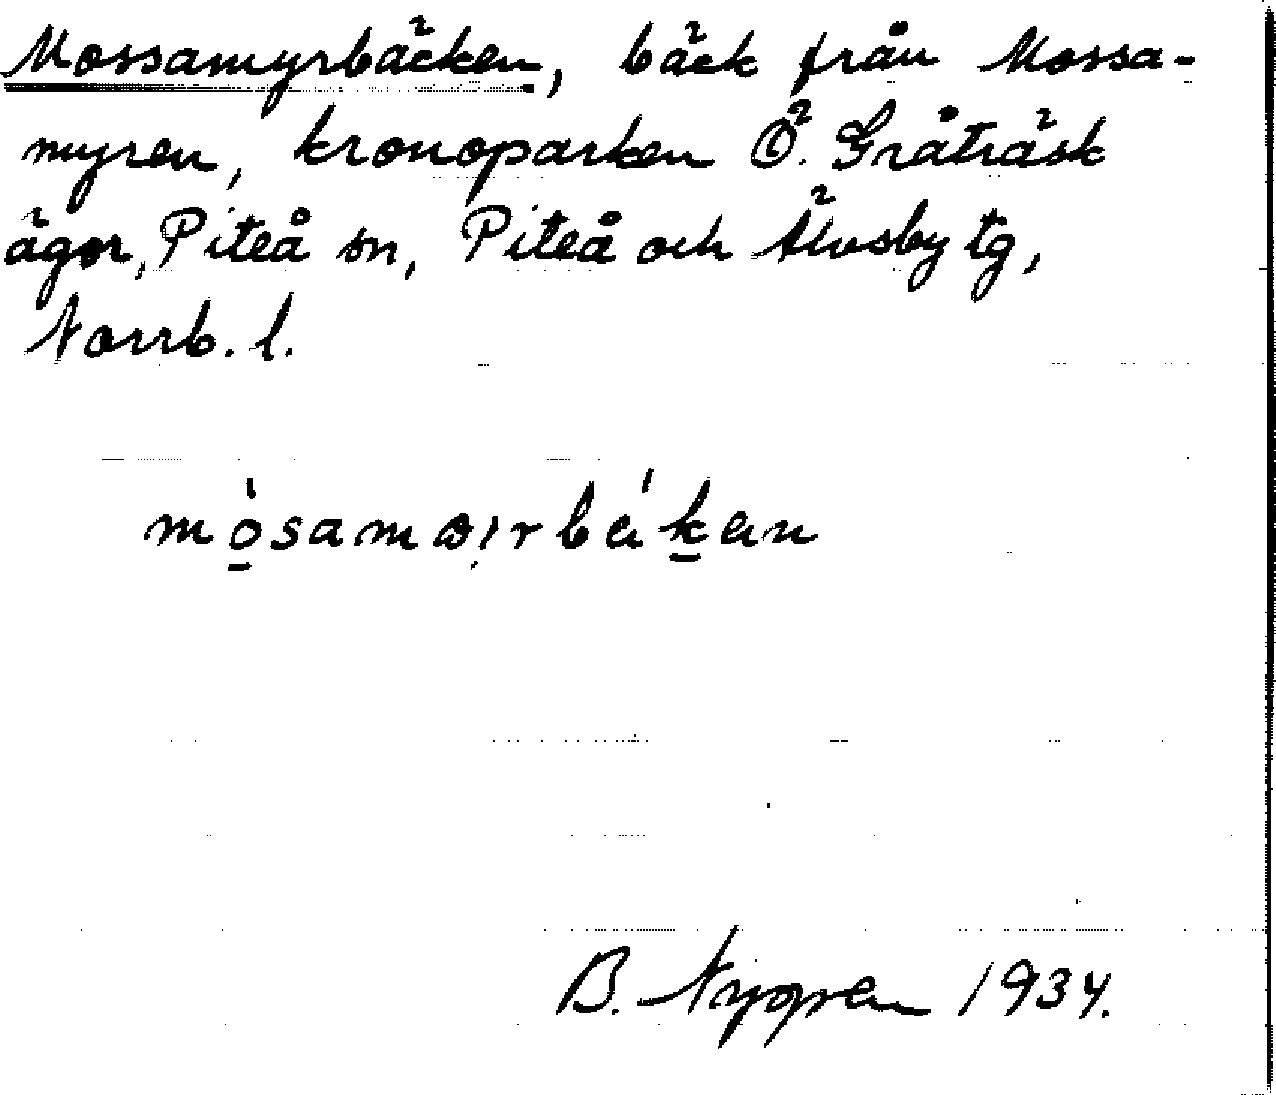 Mossamyrbäcken, bäck från Mossa-
myren, kronoparken Ö. Gråträsk
ägor, Piteå sn, Piteå och Älvsby tg,
Norrb. l.
B. Nygren 1934.